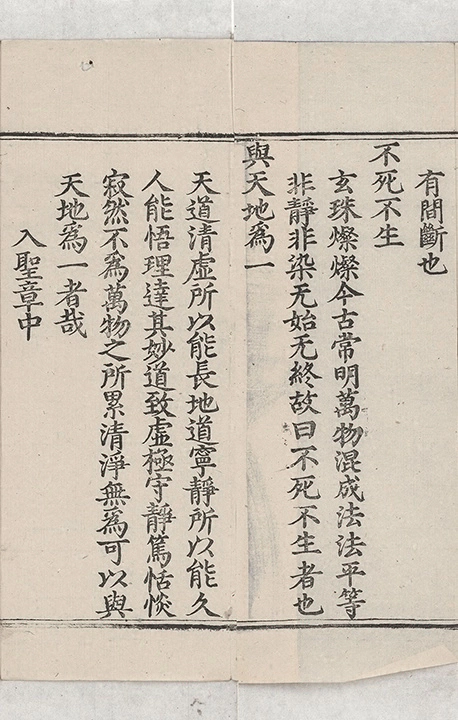 有間斷也
不死不生
玄珠燦燦今古常明萬物混成法法平等
非靜非染无始无終故曰不死不生者也
與天地為一
天道清虛所以能長地道寧靜所以能久
人能悟理達其妙道致虛極守靜篤恬惔
寂然不為萬物之所累清淨無為可以與
天地為一者哉
入聖章中